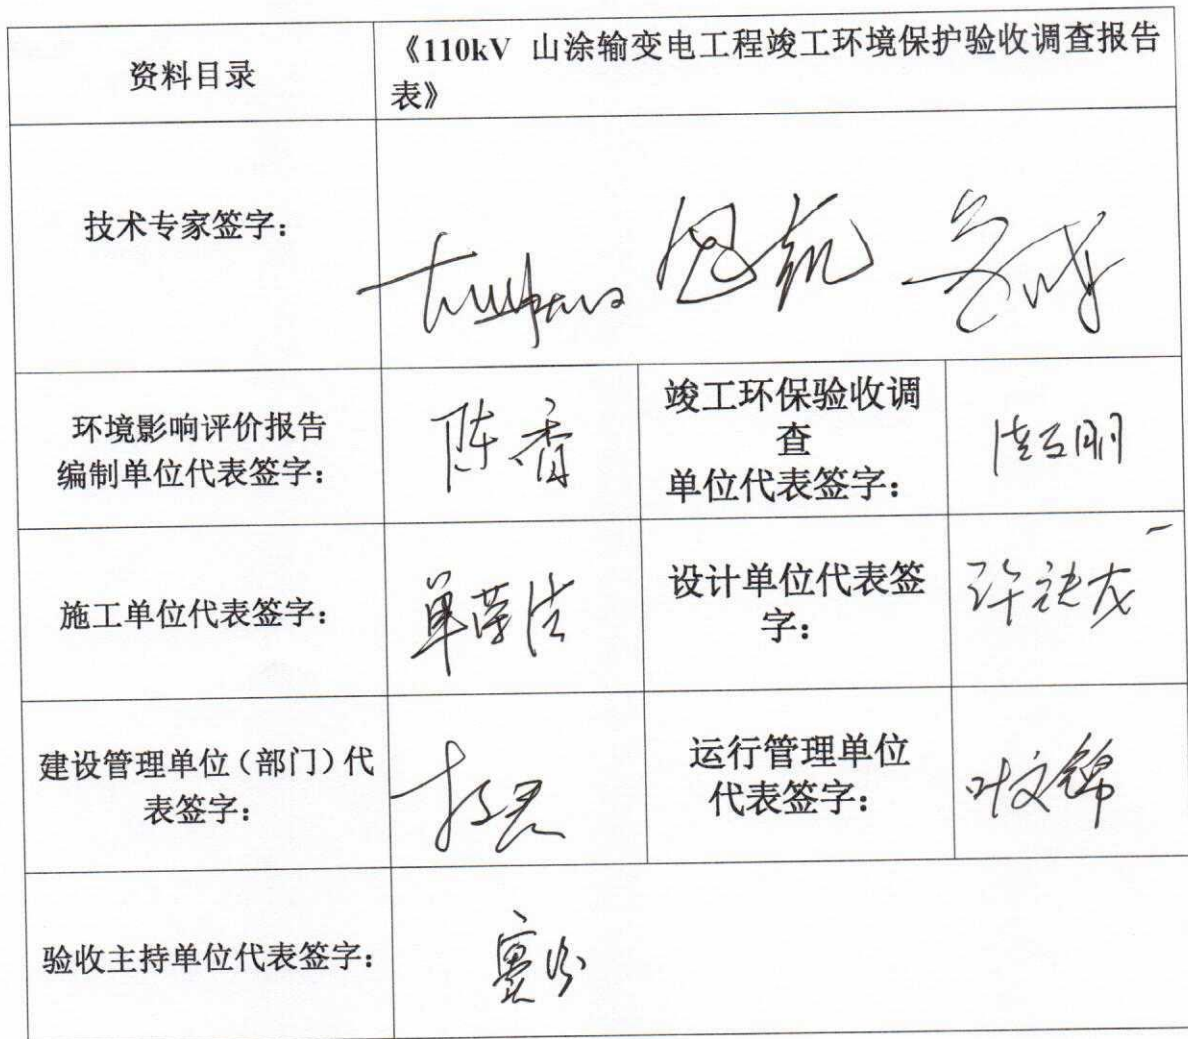 资料目录
《110kV 山涂输变电工程竣工环境保护验收调查报告
表》
技术专家签字：
环境影响评价报告
编制单位代表签字：
陈香
竣工环保验收调
查
单位代表签字：
施工单位代表签字：
单荣洁
设计单位代表签
字：
建设管理单位（部门）代
表签字：
运行管理单位
代表签字：
叶文锦
验收主持单位代表签字：